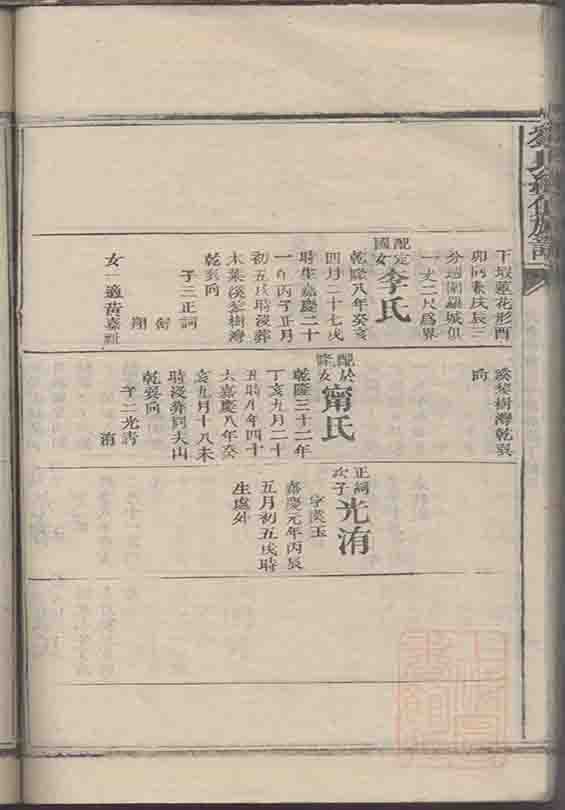 氏續修族譜
下塅蓮花形酉
卯向兼庚辰三
分週圍羅城俱
一丈二尺爲界
配定國女李氏
乾隆八年癸亥
四月二十七戌
時生嘉慶二十
一年丙子正月
初五戌時沒葬
木葉溪茶樹灣
乾巽向
子三正詞
翔
女一適黃嘉
溪茶樹灣乾巽
向
配於女甯氏
乾隆三十二年
丁亥九月二十
五時年四十
大嘉慶八年癸
亥九月十八未
時沒葬到夫山
乾巽向
子二光清
洧
正詞次子光洧
字漢玉
嘉慶元年丙辰
五月初五戌時
生處外